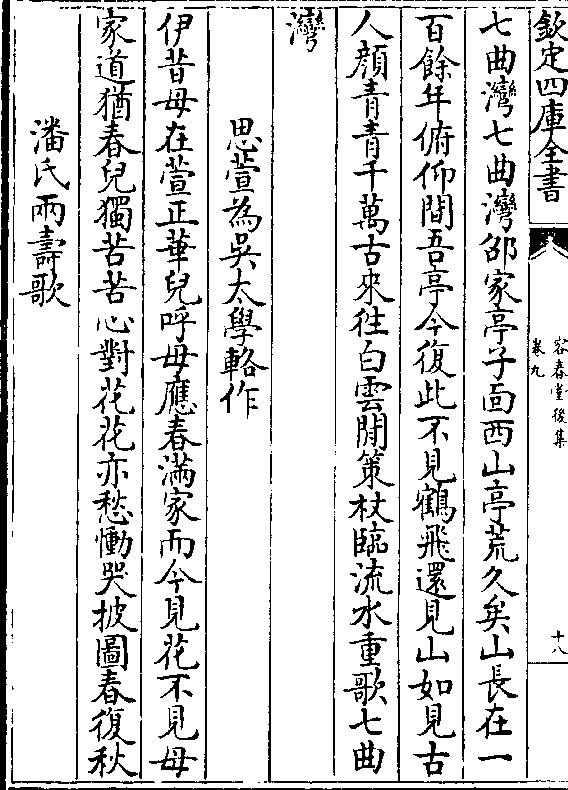 欽定四庫全書
容春堂後集
卷九
十八
七曲灣七曲灣邵家亭子面西山亭荒久矣山長在一
百餘年俯仰間吾亭今復此不見鶴飛還見山如見古
人顏青青千萬古來往白雲閒策杖臨流水重歌七曲
灣
思萱為吳太學輅作
伊昔母在萱正華兒呼母應春滿家而今見花不見母
家道猶春兒獨苦苦心對花花亦愁慟哭披圖春復秋
潘氏兩壽歌